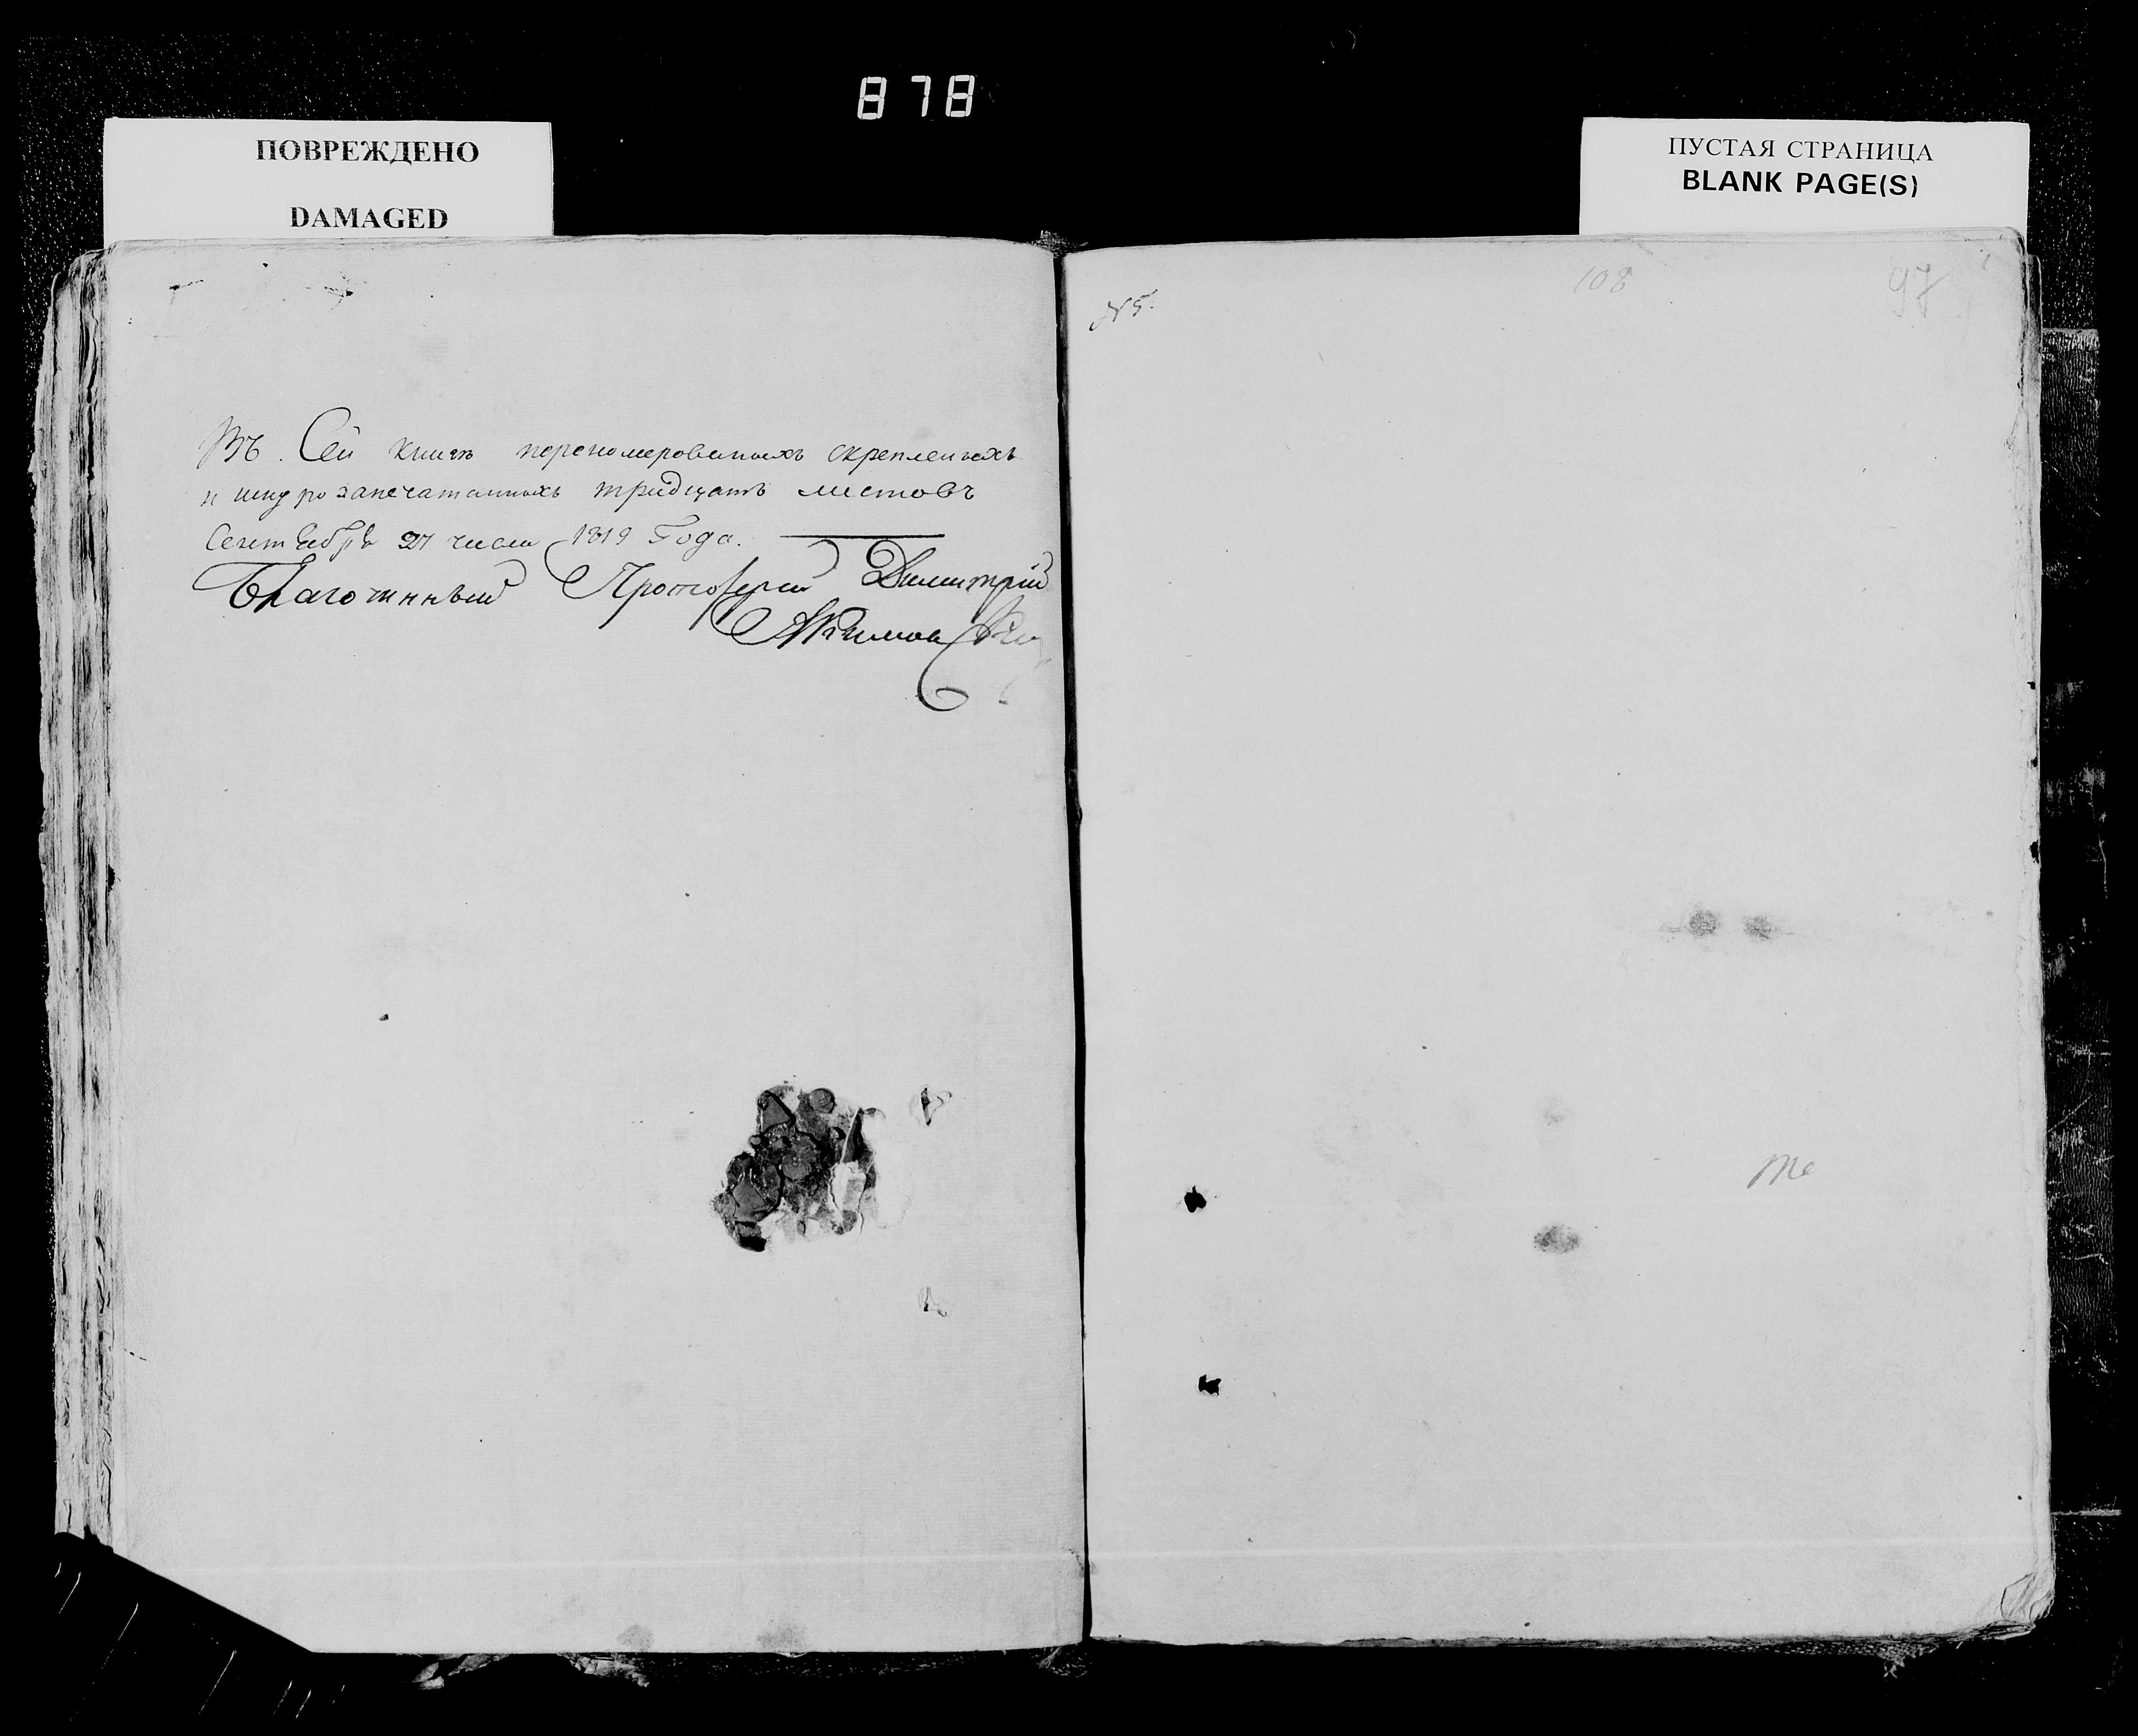 878
ПОВРЕЖДЕНО
DAMAGED
ПУСТАЯ СТРАНИЦА
BLANK PAGE(S)
Въ Сей книгѣ перономерованыхъ скрепленыхъ
и шнурозапечатанныхъ тридцать листовъ
Сентебря 27 числа 1819 Года.
Благочинный Протоіерей Димитрій
Акимов
N5.
108
97